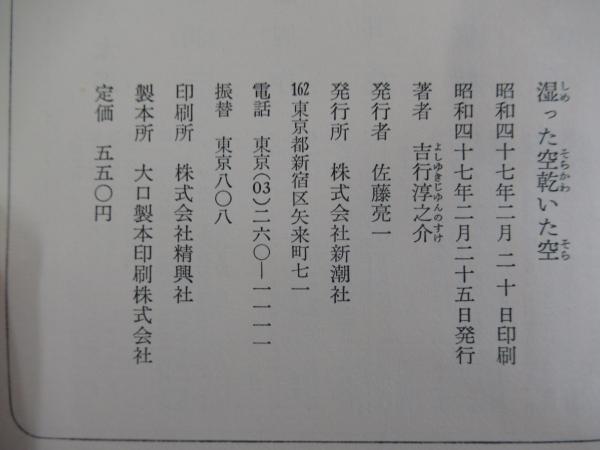 湿った空乾いた空
昭和四十七年二月 二 十 日印刷
昭和四十七年二月二十五日発行
著者 吉行淳之介
発行者 佐藤亮一
発行所 株式会社新潮社
162東京都新宿区矢来町七一
電話 東京(03)二六〇―一一一一
振替 東京八〇八
印刷所 株式会社精興社
製本所 大口製本印刷株式会社
定価 五五〇円
しめ そらかわ そら
よしゆきじゆんのすけ